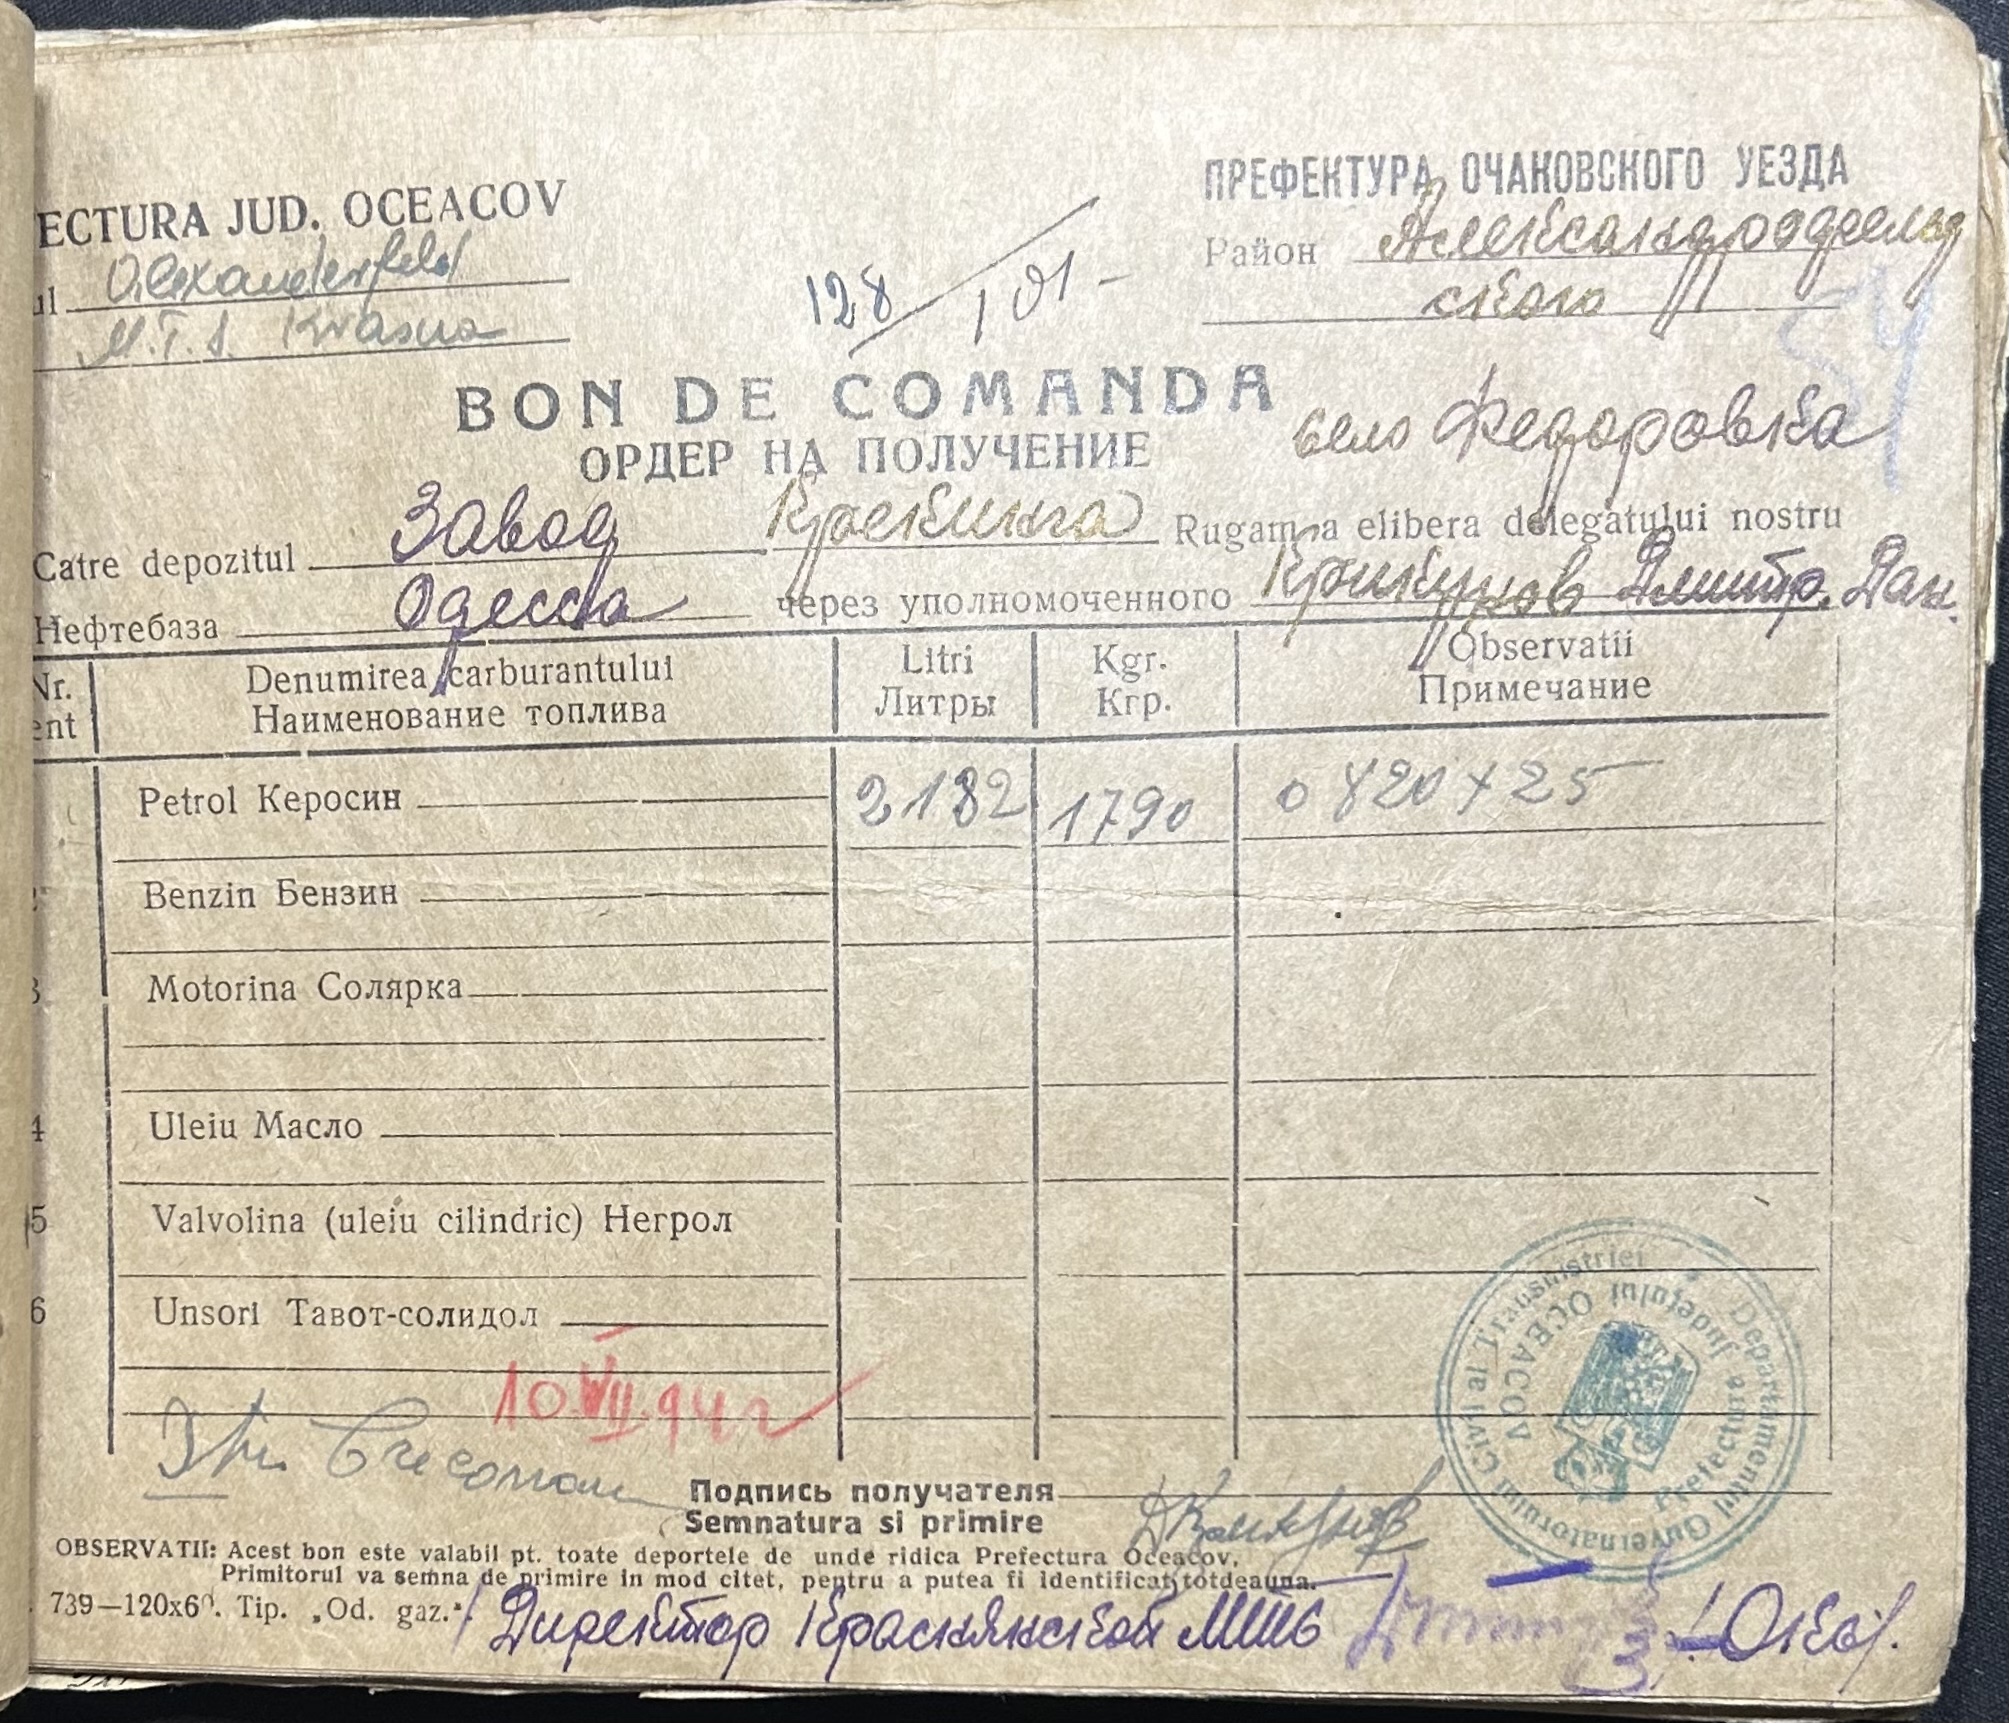 ECTURA JUD. OCEACOV
ul Alexanderfeld
M.T.S. Krasna
128 / 101 -
ПРЕФЕКТУРА ОЧАКОВСКОГО УЕЗДА
Район Александрофельд
ского
54
BON DE COMANDA
ОРДЕР НА ПОЛУЧЕНИЕ
село Федоровка
Catre depozitul Завод Крекинга Rugam a elibera delegatului nostru
Нефтебаза Одесса через уполномоченного Крикунов Дмитр. Дан.
Nr. Denumirea carburantului Litri Kgr. Observatii
ent Наименование топлива Литры Кгр. Примечание
Petrol Керосин 2182 1790 0820 + 25
2 Benzin Бензин
3 Motorina Солярка
4 Uleiu Масло
5 Valvolina (uleiu cilindric) Негрол
6 Unsori Тавот-солидол
10.VII.942
Подпись получателя
Semnatura si primire
Departamentul Guvernatorului Civil al Transnistriei
Prefectura Județului OCEACOV
OBSERVATII: Acest bon este valabil pt. toate deportele de unde ridica Prefectura Oceacov.
Primitorul va semna de primire in mod citet, pentru a putea fi identificat totdeauna.
739—120x60. Tip. „Od. gaz."
Директор Краснянской МТС